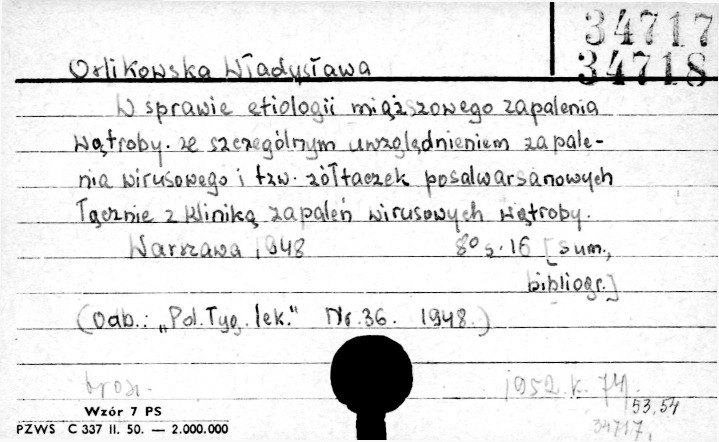 34717
34718
Orlikowska Władysława
W sprawie etiologii miąższowego zapalenia
wątroby. ze szczególnym uwzględnieniem zapale-
nia wirusowego i tzw. żółtaczek posalwarsanowych
Łącznie z kliniką zapaleń wirusowych wątroby.
Warszawa 1948 8° s. 16 [sum.,
bibliogr.]
(Odb.: „Pol. Tyg. lek." Nr. 36. 1948.)
brosz. 1952 k. 74
53,54
Wzór 7 PS
34717,
PZWS C 337 II. 50. — 2.000.000